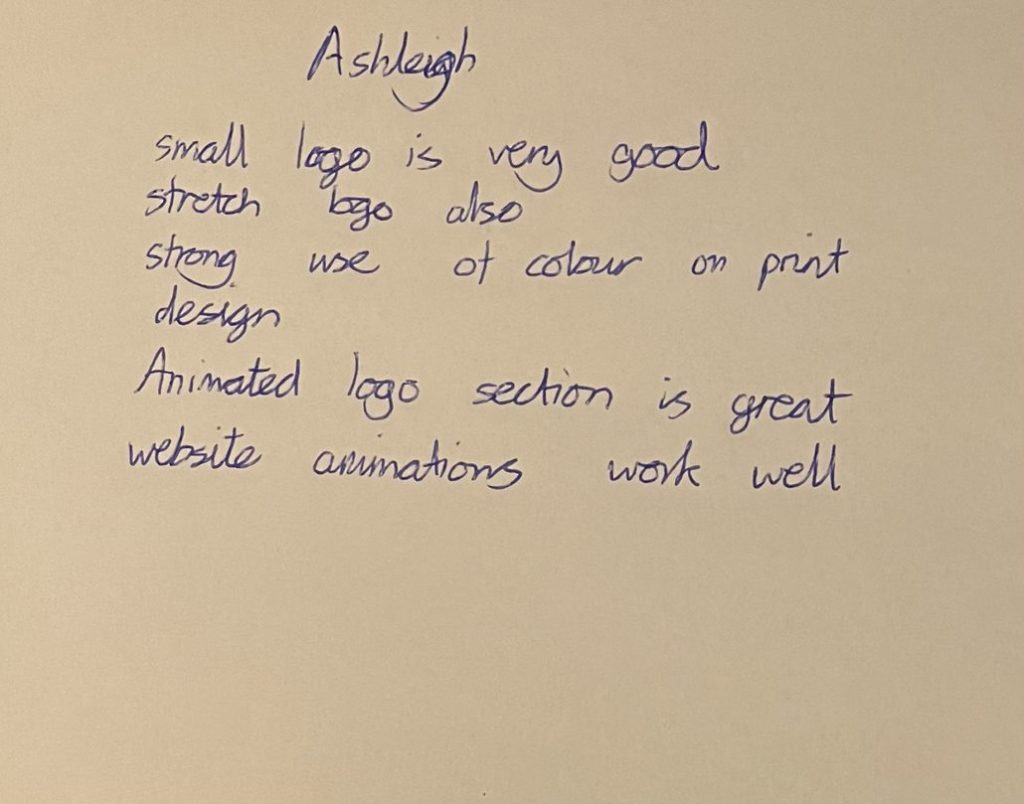 Ashleigh
small logo is very good
stretch logo also
strong use of colour on print
design
Animated logo section is great
website animations work well